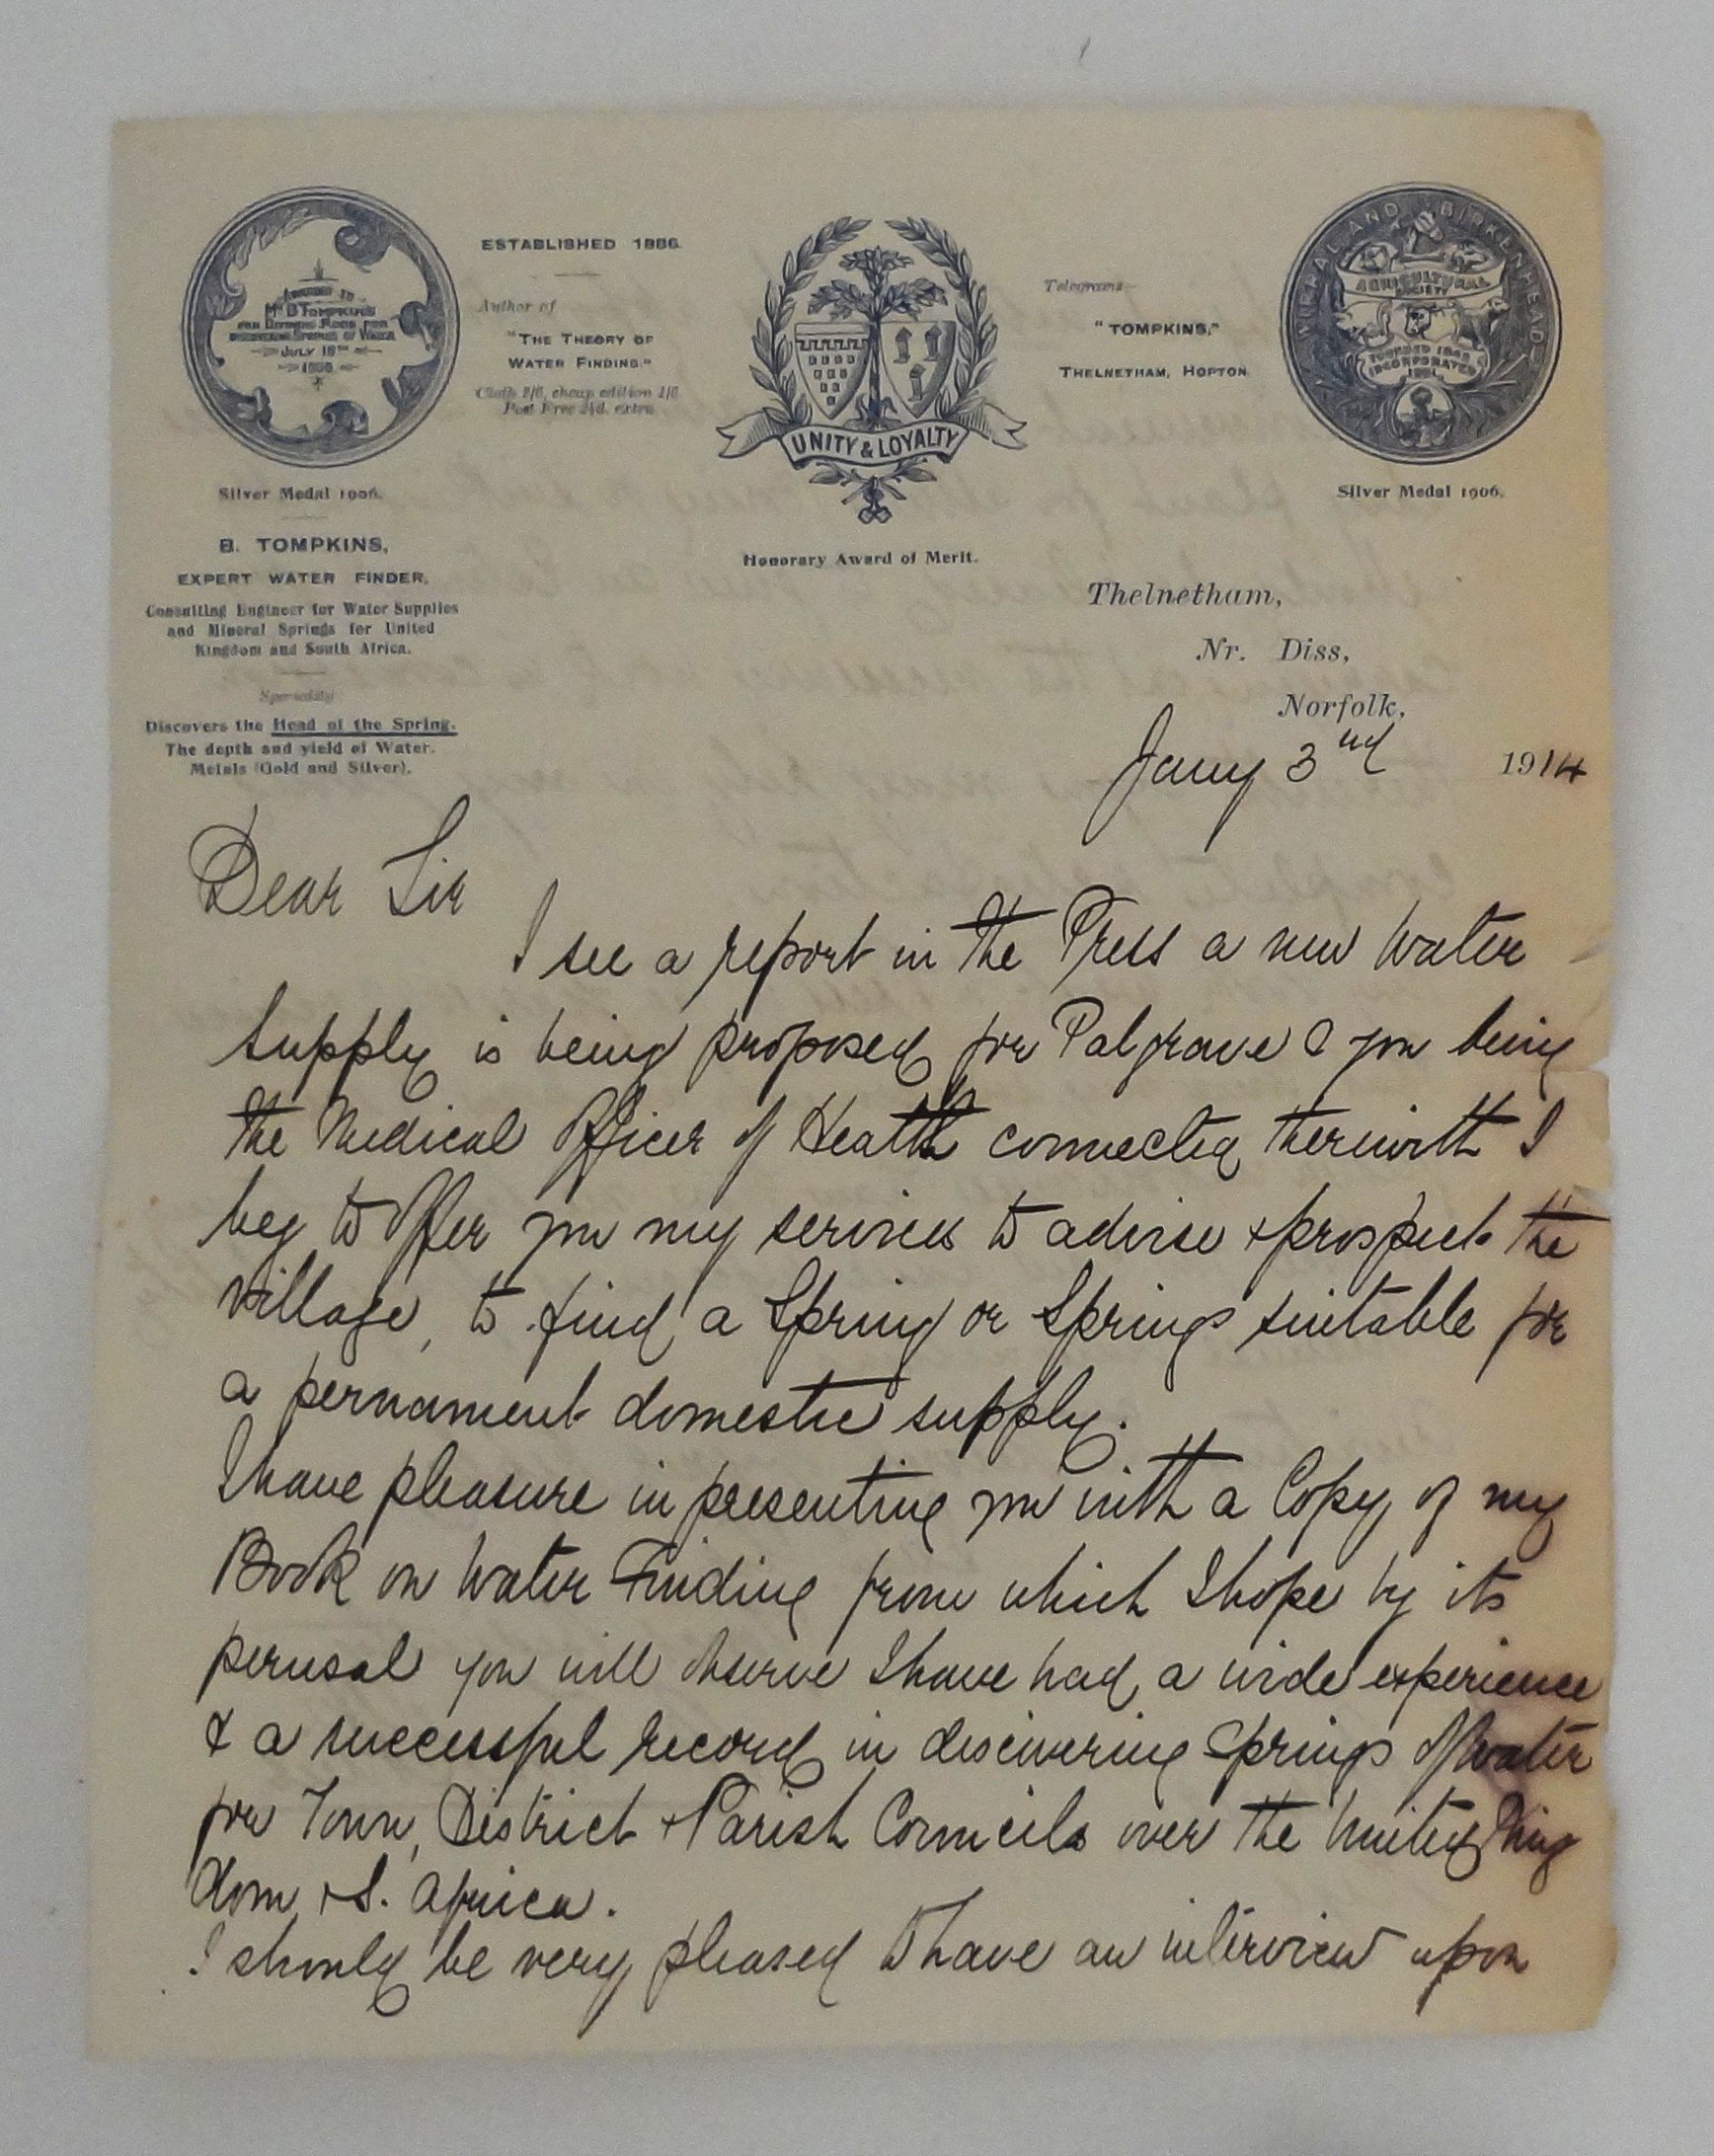 ESTABLISHED 1886.
Author of
"THE THEORY OF
WATER FINDING."
Cloth 2/6, cheap edition 1/6
Post Free 3d. extra.
AWARDED TO
MR B TOMPKINS
FOR DIVINING RODS FOR
DISCOVERING SPRINGS OF WATER
JULY 18TH
1906
Silver Medal 1906.
UNITY & LOYALTY
Honorary Award of Merit.
Telegrams—
"TOMPKINS,"
THELNETHAM, HOPTON
WIRRAL AND BIRKENHEAD
AGRICULTURAL
SOCIETY
FOUNDED 1842
INCORPORATED
Silver Medal 1906.
B. TOMPKINS,
EXPERT WATER FINDER,
Consulting Engineer for Water Supplies
and Mineral Springs for United
Kingdom and South Africa.
Speciality
Discovers the Head of the Spring.
The depth and yield of Water.
Metals (Gold and Silver).
Thelnetham,
Nr. Diss,
Norfolk,
Jany 3rd 1914
Dear Sir
I see a report in the Press a new Water
supply is being proposed for Palgrave & you being
the Medical Officer of Health connected therewith I
beg to offer you my services to advise & prospect the
Village, to find a Spring or Springs suitable for
a pernament domestic supply.
I have pleasure in presenting you with a Copy of my
Book on Water Finding from which I hope by its
perusal you will observe I have had a wide experience
& a successful record in discovering Springs of Water
for Town, District & Parish Councils over the United King
dom & S. Africa.
I should be very pleased to have an interview upon